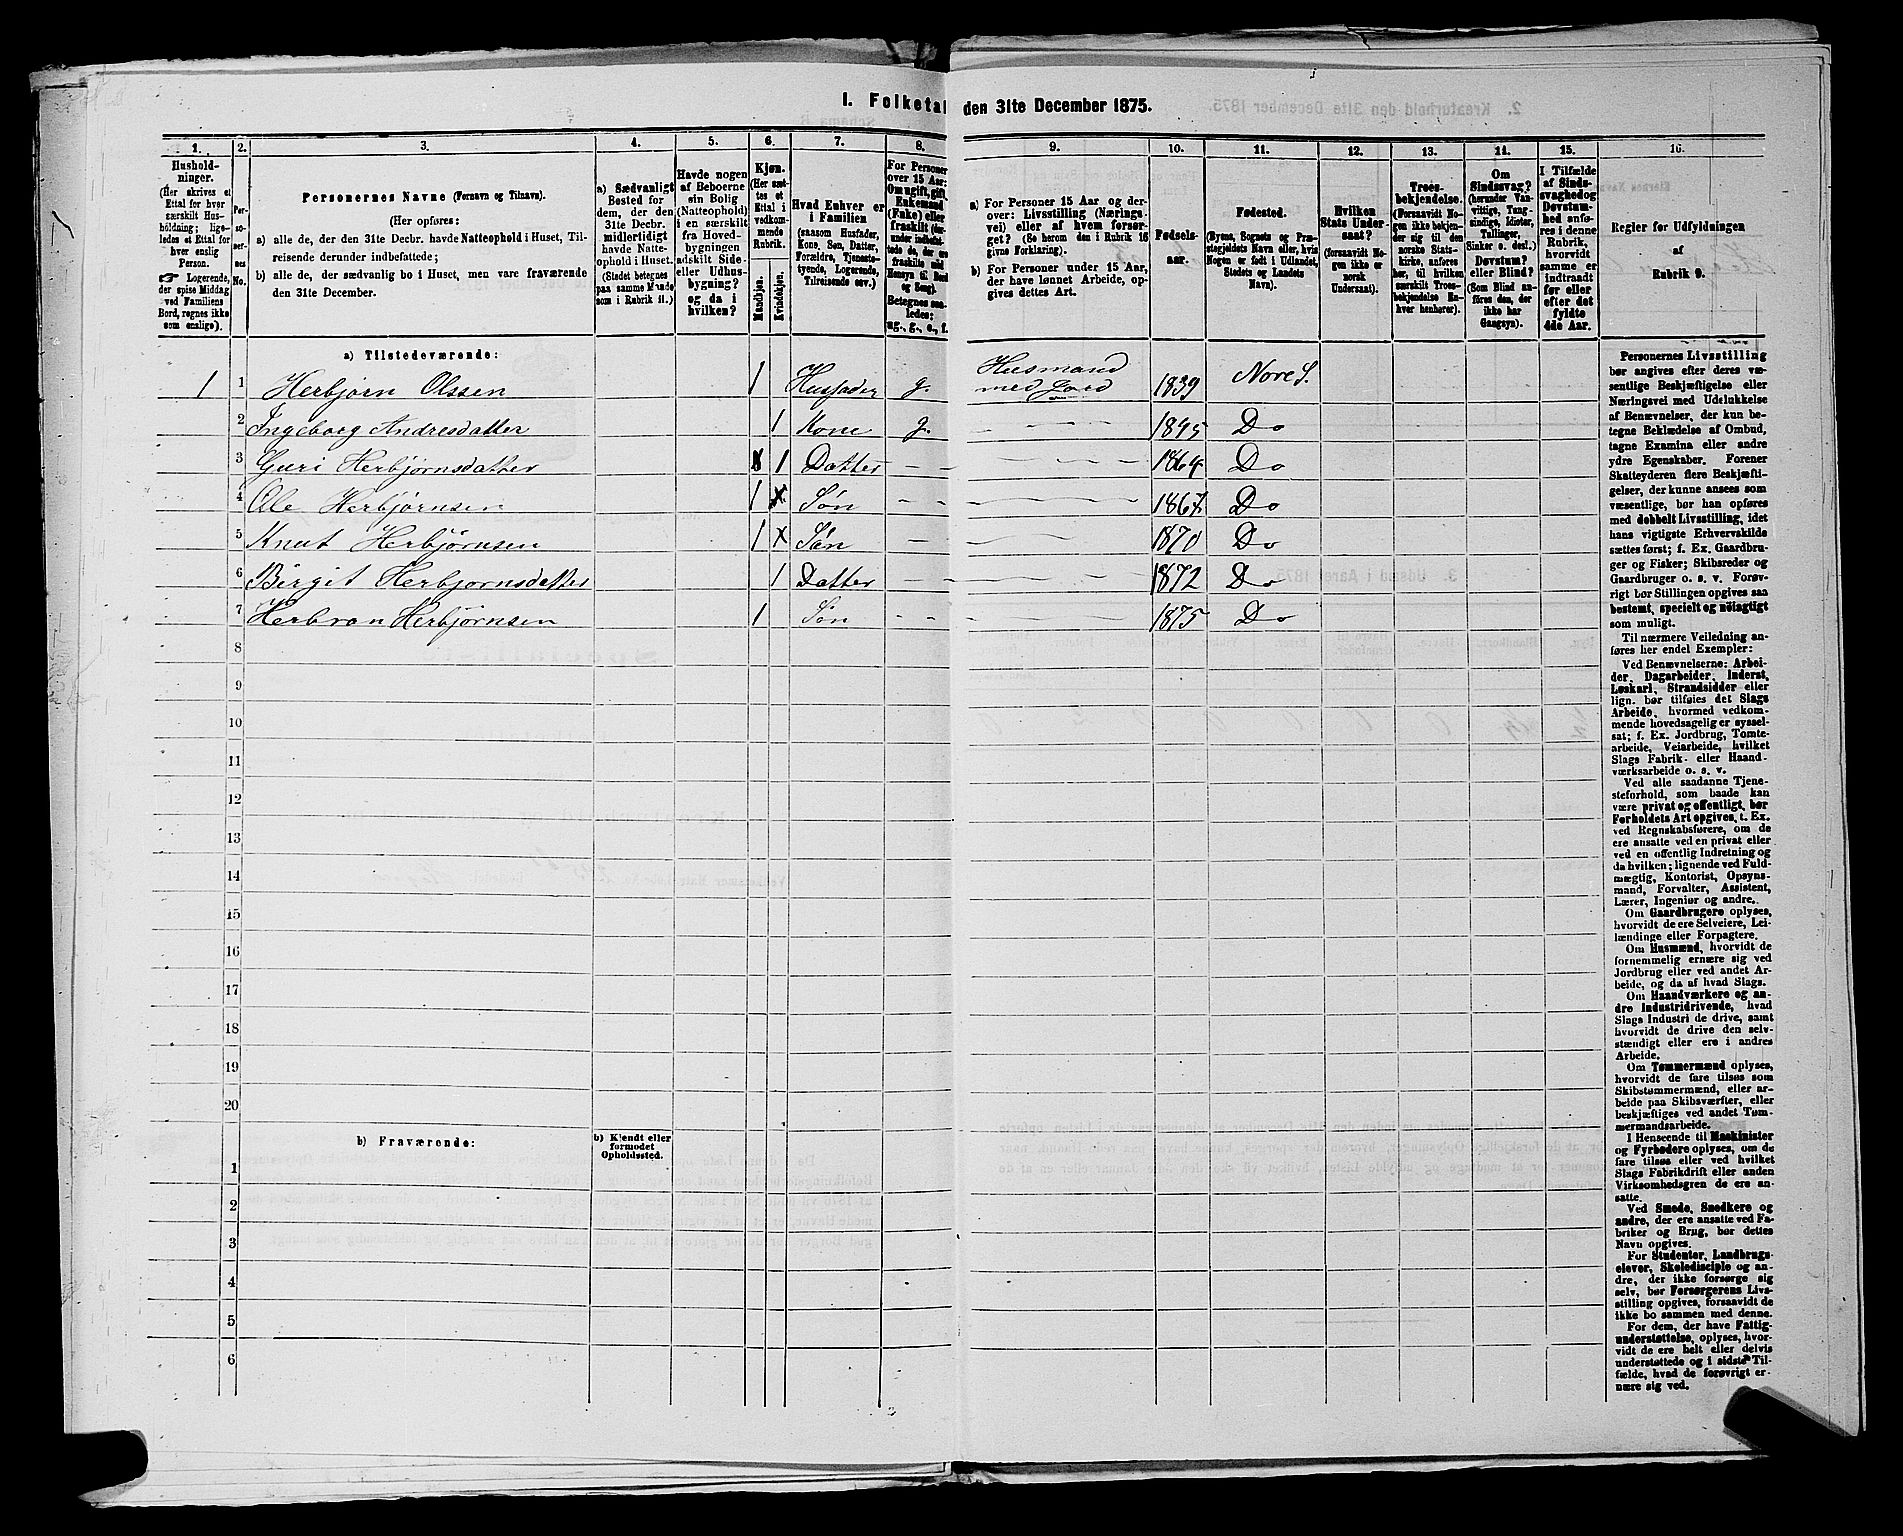 I. Folketal den 31te December 1875.
1. 2. 3. 4. 5. 6. 7. 8. 9. 10. 11. 12. 13. 14. 15. 16.
Hushold-
ninger.
(Her skrives et
Ettal for hver
særskilt Hus-
holdning; lige-
ledes et Ettal for
hver enslig
Person.
☞ Logerende,
der spise Middag
ved Familiens
Bord, regnes ikke
som enslige).
Per-
soner-
nes
No.
Personernes Navne (Fornavn og Tilnavn).
(Her opføres:
a) alle de, der den 31te Decbr. havde Natteophold i Huset, Til-
reisende derunder indbefattede;
b) alle de, der sædvanlig bo i Huset, men vare fraværende
den 31te December.
a) Sædvanligt
Bosted for
dem, der den
31te Decbr.
midlertidigt
havde Natte-
ophold i Huset.
(Stedet betegnes
paa samme Maade
som i Rubrik 11.)
Havde nogen
af Beboerne
sin Bolig
(Natteophold)
i en særskilt
fra Hoved-
bygningen
adskilt Side-
eller Udhus-
bygning?
og da i
hvilken?
Kjøn.
(Her sæt-
tes et
Ettal i
vedkom-
mende
Rubrik.
Mandkjøn.
Kvindekjøn.
Hvad Enhver er
i Familien
(saasom Husfader,
Kone, Søn, Datter,
Forældre, Tjeneste-
tyende, Logerende,
Tilreisende osv.)
For Personer
over 15 Aar:
Om ugift, gift,
Enkemand
(Enke) eller
fraskilt
Betegnes saa-
ledes:
ug., g., e., f.
a) For Personer 15 Aar og der-
over: Livsstilling (Nærings-
vei) eller af hvem forsør-
get? (Se herom den i Rubrik 16
givne Forklaring).
b) For Personer under 15 Aar,
der have lønnet Arbeide, op-
gives dettes Art.
Fødsels-
aar.
Fødested.
(Byens, Sognets og Præ-
stegjeldets Navn eller, hvis
Nogen er født i Udlandet,
Stedets og Landets
Navn).
Hvilken
Stats Under-
saat?
(forsaavidt No-
gen ikke er
norsk
Undersaat).
Troes-
bekjendelse.
(Forsaavidt No-
gen ikke bekjen-
der sig til den
norske Stats-
kirke, anføres
her, til hvilken
særskilt Troes-
bekjendelse En-
hver henhører).
Om
Sindssvag?
(herunder Van-
vittige, Tung-
sindige, Idioter,
Tullinger,
Sinker o. desl.).
Døvstum?
eller Blind?
(Som Blind an-
føres den, der
ikke har
Gangsyn).
I Tilfælde
af Sinds-
svaghed og
Døvstum-
hed anfø-
res i denne
Rubrik,
hvorvidt
samme er
indtraadt
før eller
efter det
fyldte
4de Aar.
Regler for Udfyldningen
af
Rubrik 9.
a) Tilstedeværende:
1 1 Herbjørn Olssen 1 Husfader g. Husmand med Jord 1839 Nore S.
2 Ingeborg Andresdatter 1 Kone g. – – – 1845 Do
3 Guri Herbjørnsdatter 1 Datter – – – – – 1864 Do
4 Ole Herbjørnsen 1 x Søn – – – – – 1867 Do
5 Knut Herbjørnsen 1 x Søn – – – – 1870 Do
6 Birgit Herbjørnsdatter 1 Datter – – – – 1872 Do
7 Herbran Herbjørnsen 1 Søn – – – – – 1875 Do
8
9
10
11
12
13
14
15
16
17
18
19
20
b) Fraværende:
b) Kjendt eller
formodet
Opholdssted.
1
2
3
4
5
6
Personernes Livsstilling
bør angives efter deres væ-
sentlige Beskjæftigelse eller
Næringsvei med Udelukkelse
af Benævnelser, der kun be-
tegne Beklædelse af Ombud,
tagne Examina eller andre
ydre Egenskaber. Forener
Skatteyderen flere Beskjæfti-
gelser, der kunne ansees som
væsentlige, bør han opføres
med dobbelt Livsstilling, idet
hans vigtigste Erhvervskilde
sættes først; f. Ex. Gaardbru-
ger og Fisker; Skibsreder og
Gaardbruger o. s. v. Forøv-
rigt bør Stillingen opgives saa
bestemt, specielt og nøiagtigt
som muligt.
Til nærmere Veiledning an-
føres her endel Exempler:
Ved Benævnelserne: Arbei-
der, Dagarbeider, Inderst,
Løskarl, Strandsidder eller
lign. bør tilføies det Slags
Arbeide, hvormed vedkom-
mende hovedsagelig er syssel-
sat; f. Ex. Jordbrug, Tomte-
arbeide, Veiarbeide, hvilket
Slags Fabrik- eller Haand-
værksarbeide o. s. v.
Ved alle saadanne Tjene-
steforhold, som baade kan
være privat og offentligt, bør
Forholdets Art opgives, t. Ex.
ved Regnskabsførere, om de
ere ansatte ved en privat eller
ved en offentlig Indretning og
da hvilken; lignende ved Fuld-
mægtig, Kontorist, Opsyns-
mand, Forvalter, Assistent,
Lærer, Ingeniør og andre.
Om Gaardbrugere oplyses,
hvorvidt de ere Selveiere, Lei-
lændinge eller Forpagtere.
Om Husmænd, hvorvidt de
fornemmelig ernære sig ved
Jordbrug eller ved andet Ar-
beide, og da af hvad Slags.
Om Haandværkere og an-
dre Industridrivende, hvad
Slags Industri de drive, samt
hvorvidt de drive den selv-
stændigt eller ere i andres
Arbeide.
Om Tømmermænd oplyses,
hvorvidt de fare tilsøs som
Skibstømmermænd, eller ar-
beide paa Skibsværfter, eller
beskjæftiges ved andet Tøm-
mermandsarbeide.
I Henseende til Maskinister
og Fyrbødere oplyses, om de
fare tilsøs eller ved hvilket
Slags Fabrikdrift eller anden
Virksomhedsgren de ere an-
satte.
Ved Smede, Snedkere og
andre, der ere ansatte ved Fa-
briker og Brug, bør dettes
Navn opgives.
For Studenter, Landbrugs-
elever, Skoledisciple og an-
dre, der ikke forsørge sig
selv, bør Forsørgerens Livs-
stilling opgives, forsaavidt de
ikke bo sammen med denne.
For dem, der have Fattig-
understøttelse, oplyses, hvor-
vidt de ere helt eller delvis
understøttede og i sidste Til-
fælde, hvad de forøvrigt er-
nære sig ved.